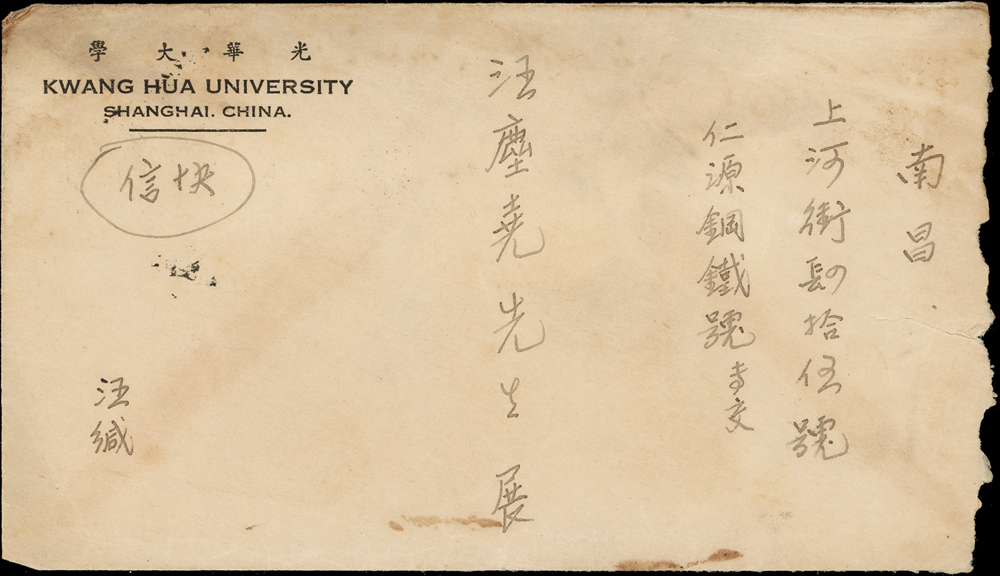 光華大學
KWANG HUA UNIVERSITY
SHANGHAI. CHINA.
快信
南昌
上河街肆拾伍號
仁源鋼鐵號交
汪塵堯先生展
汪緘